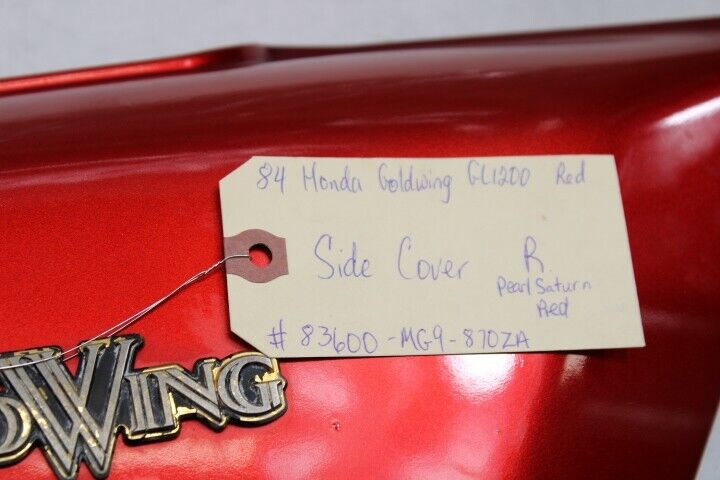 84 Honda Goldwing GL1200 Red
Side Cover R
Pearl Saturn
Red
# 83600-MG9-870ZA
DWING